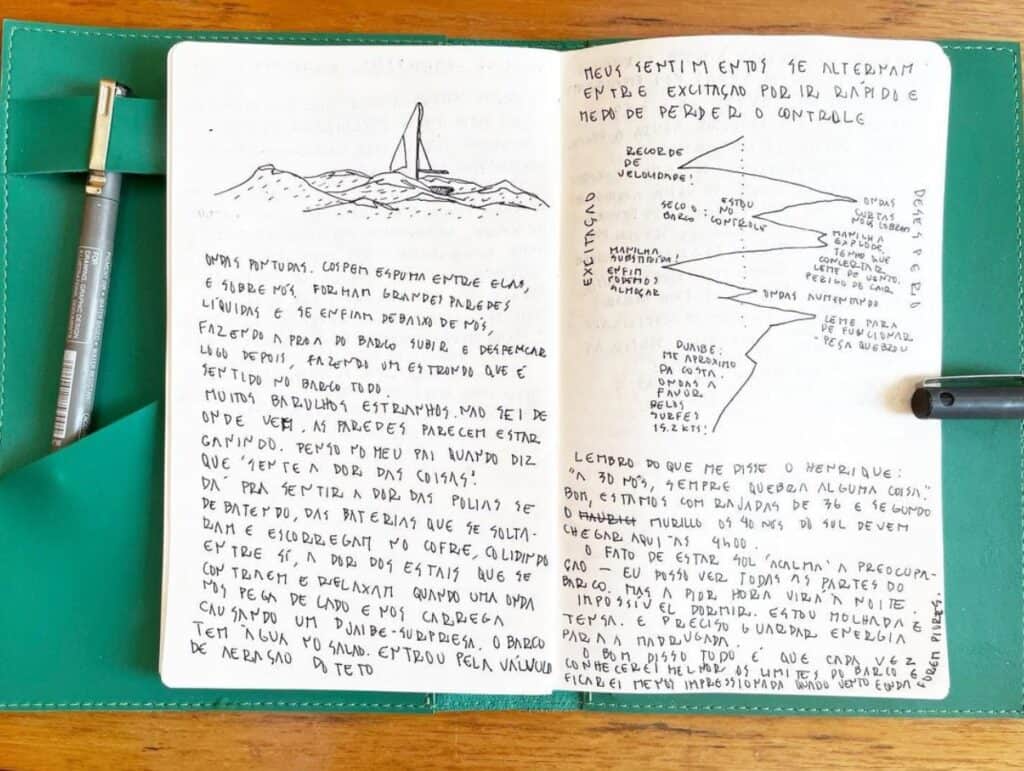 ONDAS PONTUDAS. COSPEM ESPUMA ENTRE ELAS,
E SOBRE NÓS. FORMAM GRANDES PAREDES
LÍQUIDAS E SE ENFIAM DEBAIXO DE NÓS,
FAZENDO A PROA DO BARCO SUBIR E DESPENCAR
LOGO DEPOIS, FAZENDO UM ESTRONDO QUE É
SENTIDO NO BARCO TODO.
MUITOS BARULHOS ESTRANHOS. NÃO SEI DE
ONDE VEM, AS PAREDES PARECEM ESTAR
GANINDO. PENSO NO MEU PAI QUANDO DIZ
QUE "SENTE A DOR DAS COISAS".
DÁ PRA SENTIR A DOR DAS POLIAS SE
DEBATENDO, DAS BATERIAS QUE SE SOLTA-
RAM E ESCORREGAM NO COFRE, COLIDINDO
ENTRE SÍ, A DOR DOS ESTAIS QUE SE
CONTRAEM E RELAXAM QUANDO UMA ONDA
NOS PEGA DE LADO E NOS CARREGA
CAUSANDO UM DJAIBE-SURPRESA. O BARCO
TEM ÁGUA NO SALÃO. ENTROU PELA VÁLVULA
DE AERAÇÃO DO TETO
MEUS SENTIMENTOS SE ALTERNAM
ENTRE EXCITAÇÃO POR IR RÁPIDO E
MEDO DE PERDER O CONTROLE
EXCITAÇÃO
DESESPERO
RECORDE
DE
VELOCIDADE!
ONDAS
CURTAS
NOS COBREM
SECO O
BARCO
ESTOU
NO
CONTROLE
MANILHA
EXPLODE,
TENHO QUE
CONCERTAR
LEME DE VENTO.
PERIGO DE CAIR
MANILHA
SUBSTITUIDA!
ENFIM
PODEMOS
ALMOÇAR
ONDAS AUMENTANDO
LEME PARA
DE FUNCIONAR
- PEÇA QUEBROU
DJAIBE:
ME APROXIMO
DA COSTA.
ONDAS A
FAVOR
BELOS
SURFES
15.2 KTS!
LEMBRO DO QUE ME DISSE O HENRIQUE:
"A 30 NÓS, SEMPRE QUEBRA ALGUMA COISA."
BOM, ESTAMOS COM RAJADAS DE 36 E SEGUNDO
O MURILLO OS 40 NÓS DO SUL DEVEM
CHEGAR AQUI ÀS 4H00.
O FATO DE ESTAR SOL "ACALMA" A PREOCUPA-
ÇÃO — EU POSSO VER TODAS AS PARTES DO
BARCO. MAS A PIOR HORA VIRÁ À NOITE.
IMPOSSÍVEL DORMIR. ESTOU MOLHADA E
TENSA. É PRECISO GUARDAR ENERGIA
PARA A MADRUGADA.
O BOM DISSO TUDO É QUE CADA VEZ
CONHECEREI MELHOR OS LIMITES DO BARCO E
FICAREI MENOS IMPRESSIONADA QUADO VENTO E ONDA
FOREM PIORES.
DRAWING GRAPHIC DESIGN